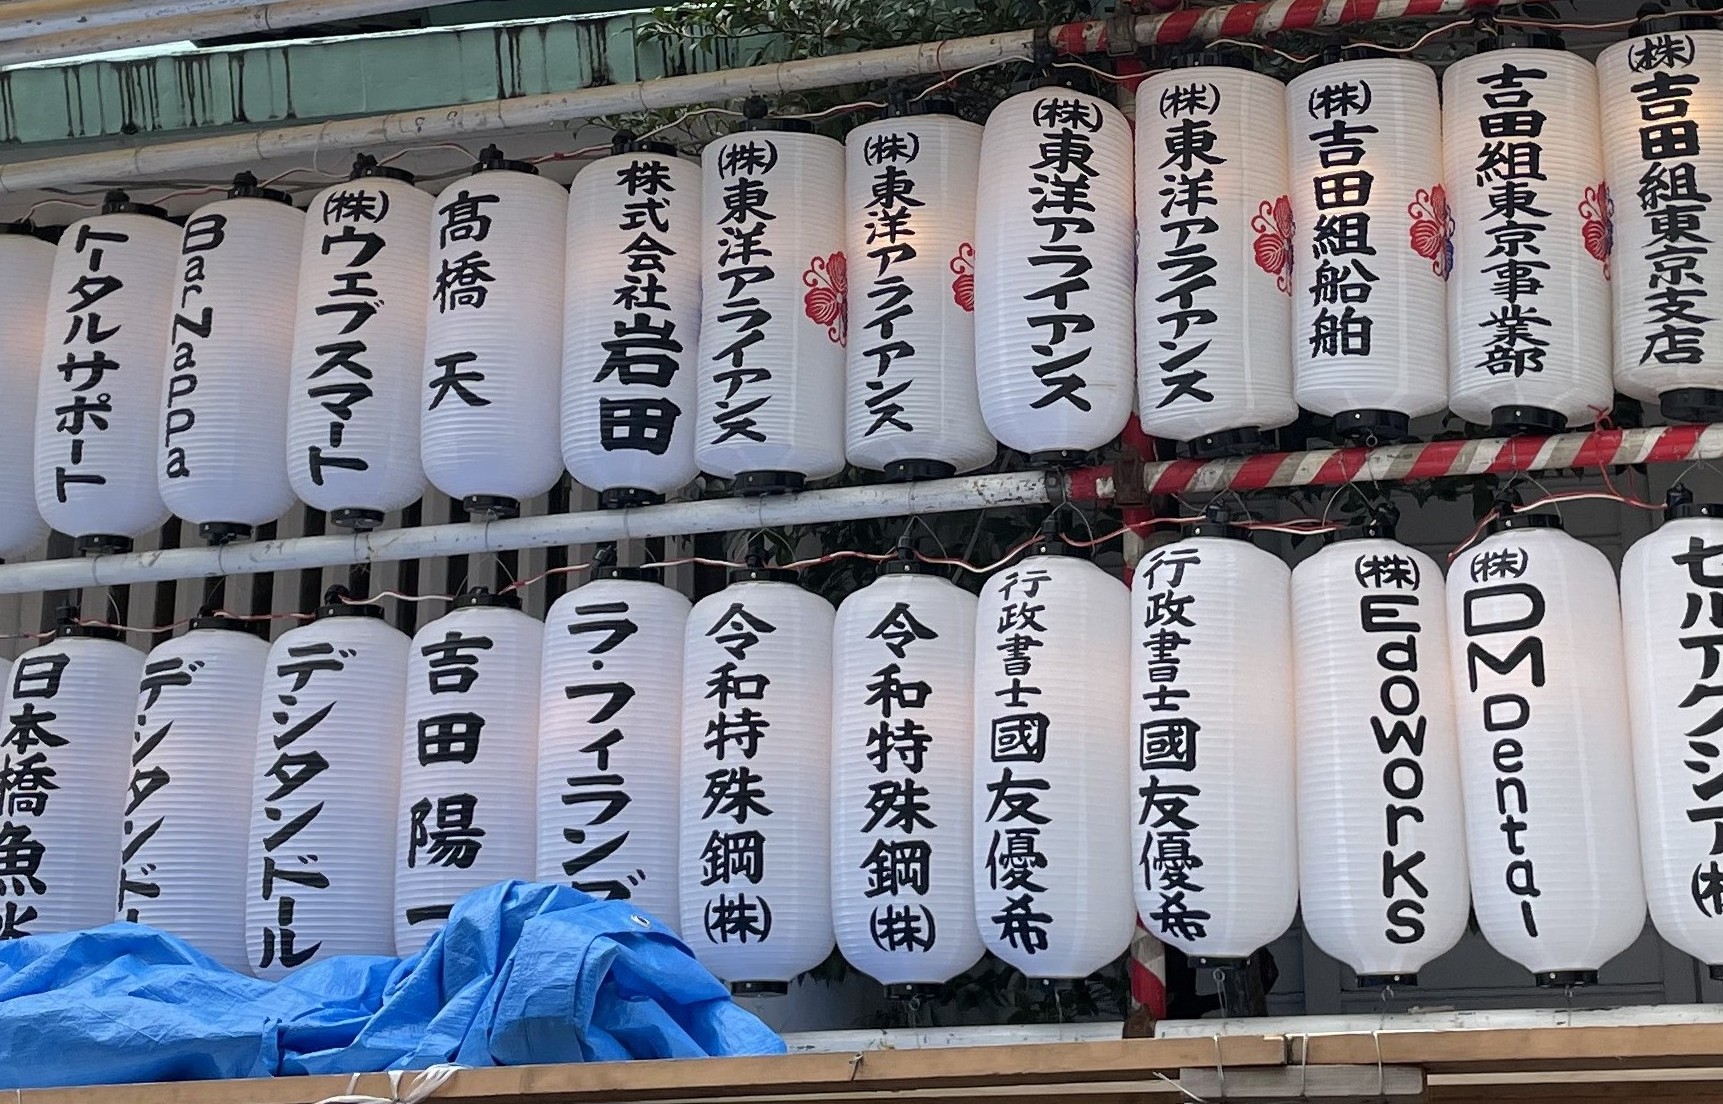 トータルサポート
Bar Nappa
(株)ウェブスマート
髙橋 天
株式会社岩田
(株)東洋アライアンス
(株)東洋アライアンス
(株)東洋アライアンス
(株)東洋アライアンス
(株)吉田組船舶
吉田組東京事業部
(株)吉田組東京支店
日本橋魚米
デンタンドー
デシタンドール
吉田陽一
ラ・フィランデ
令和特殊鋼(株)
令和特殊鋼(株)
行政書士國友優希
行政書士國友優希
(株)EdoWorks
(株)DMDental
セルアクシア(株